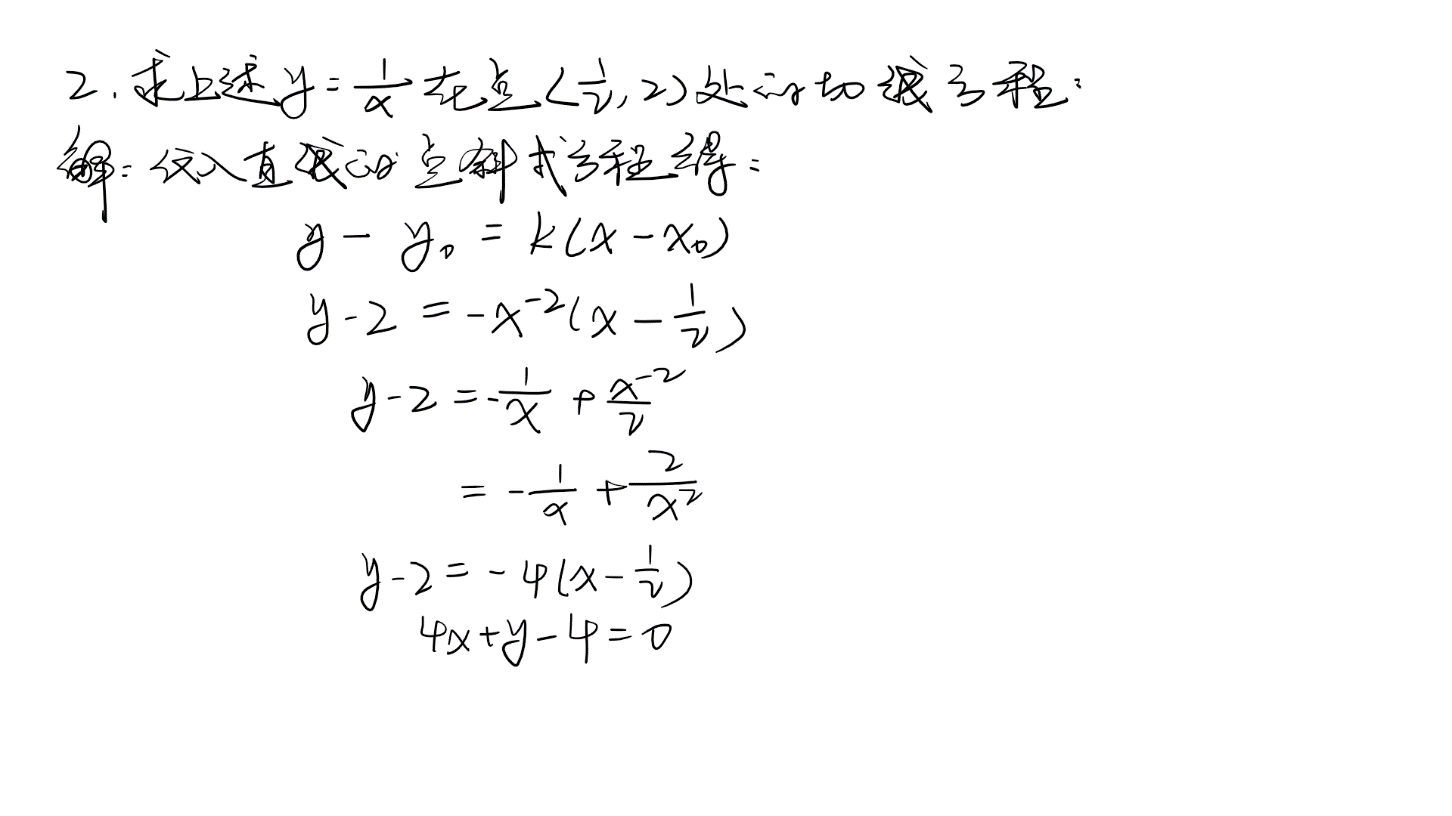 2. 求上述 y = 1/x 在点 (1/2, 2) 处的切线方程:
解: 代入直线的点斜式方程得:
y - y₀ = k(x - x₀)
y - 2 = -x⁻²(x - 1/2)
y - 2 = -1/x + x⁻²/2
= -1/x + 2/x²
y - 2 = -4(x - 1/2)
4x + y - 4 = 0